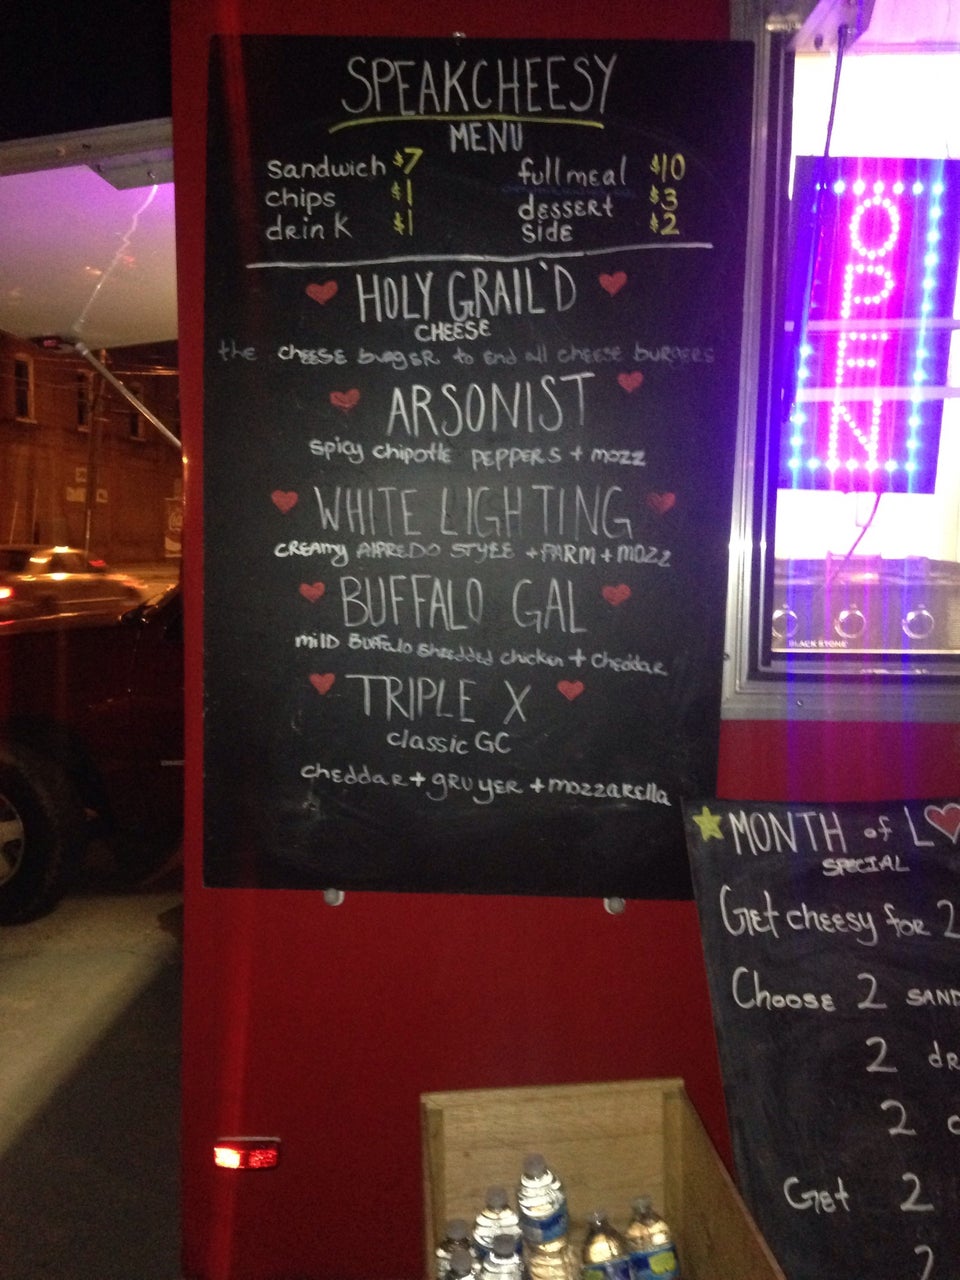 SPEAKCHEESY
MENU
sandwich $7 full meal $10
chips $1 dessert $3
drink $1 side $2
HOLY GRAIL'D
CHEESE
the cheese burger to end all cheese burgers
ARSONIST
spicy chipotle peppers + mozz
WHITE LIGHTING
creamy alfredo style + parm + mozz
BUFFALO GAL
mild Buffalo shredded chicken + cheddar
TRIPLE X
classic GC
cheddar + gruyer + mozzarella
OPEN
BLACKSTONE
MONTH of L
SPECIAL
Get cheesy for 2
Choose 2 SAND
2 dR
2
Get 2
2